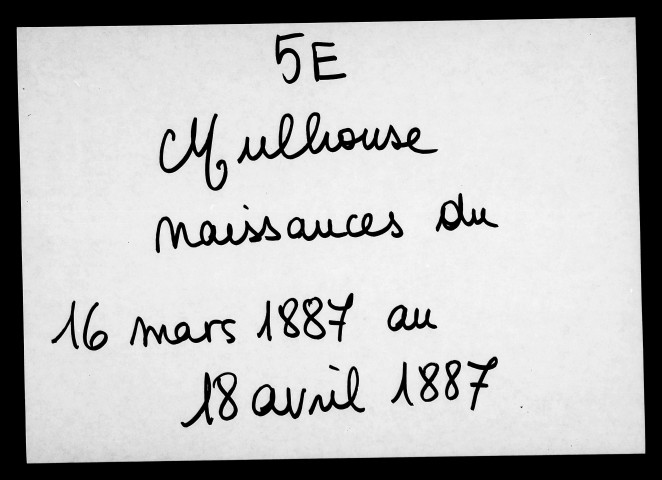 5E
Mulhouse
naissances du
16 mars 1887 au
18 avril 1887